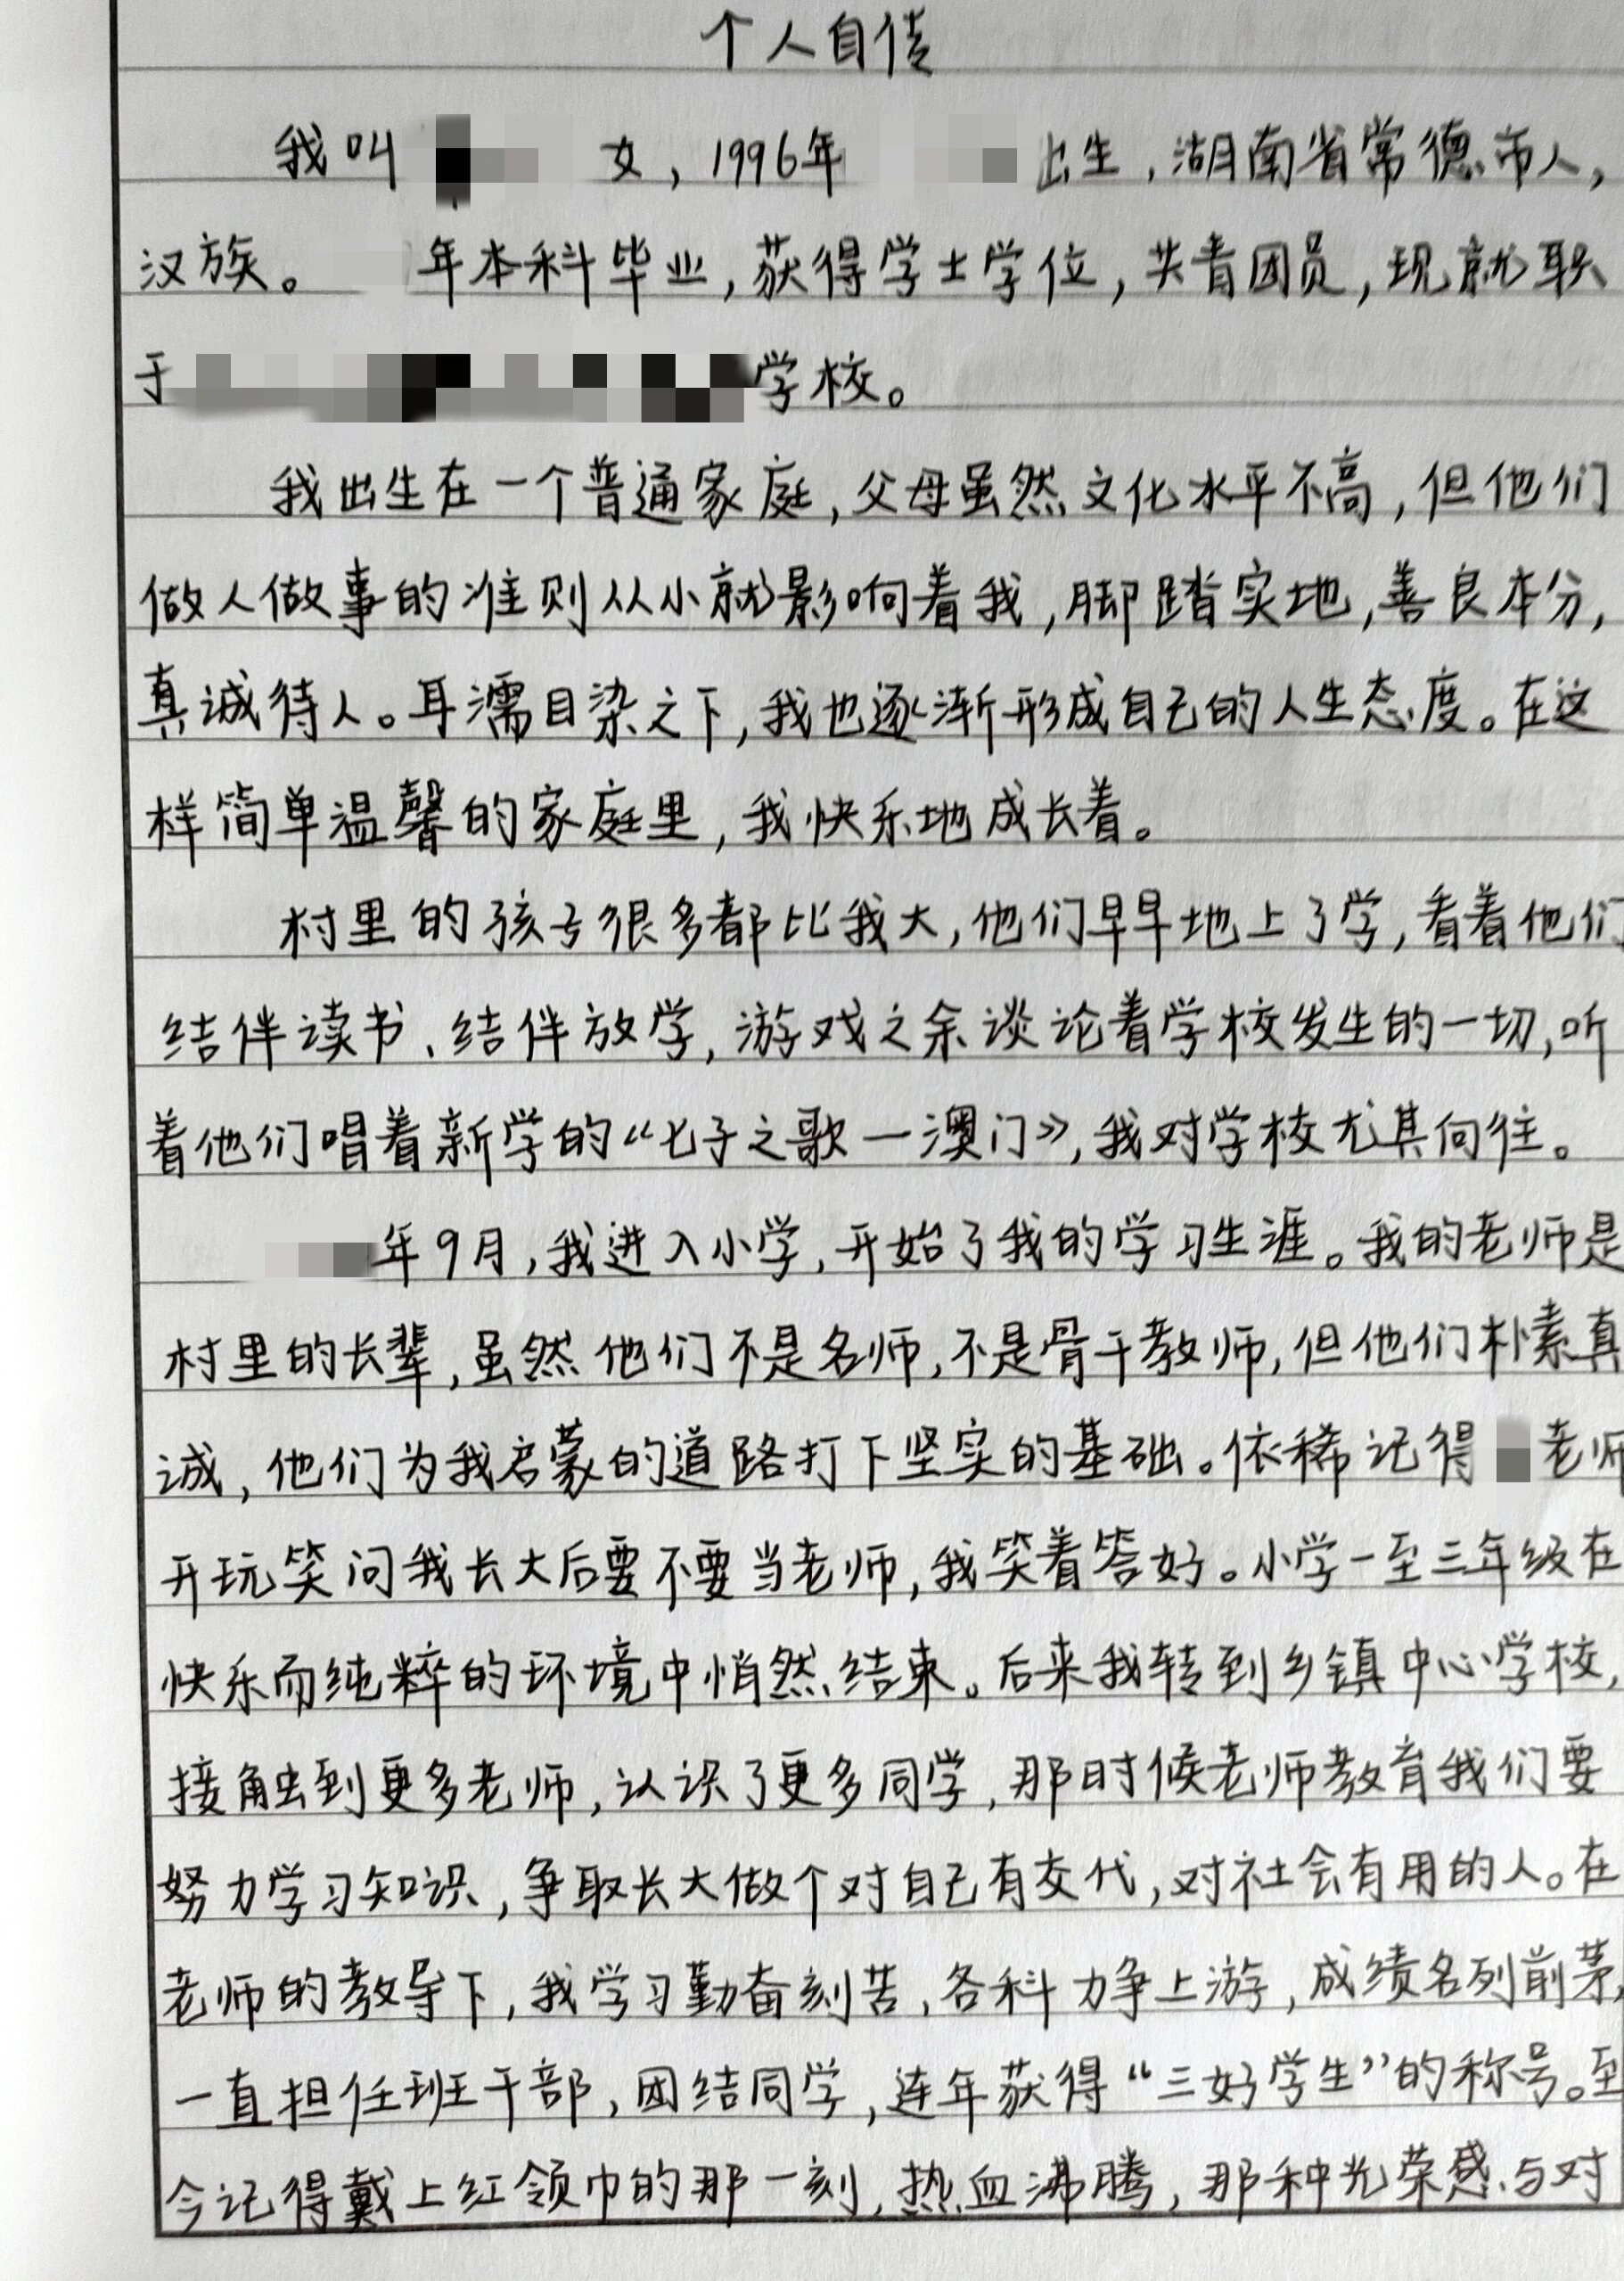 个人自传
我叫 女，1996年 出生，湖南省常德市人，
汉族。 年本科毕业，获得学士学位，共青团员，现就职
于 学校。
我出生在一个普通家庭，父母虽然文化水平不高，但他们
做人做事的准则从小就影响着我，脚踏实地，善良本分，
真诚待人。耳濡目染之下，我也逐渐形成自己的人生态度。在这
样简单温馨的家庭里，我快乐地成长着。
村里的孩子很多都比我大，他们早早地上了学，看着他们
结伴读书、结伴放学，游戏之余谈论着学校发生的一切，听
着他们唱着新学的“七子之歌一澳门》，我对学校尤其向往。
年9月，我进入小学，开始了我的学习生涯。我的老师是
村里的长辈，虽然他们不是名师，不是骨干教师，但他们朴素真
诚，他们为我启蒙的道路打下坚实的基础。依稀记得 老师
开玩笑问我长大后要不要当老师，我笑着答好。小学一至三年级在
快乐而纯粹的环境中悄然结束。后来我转到乡镇中心学校，
接触到更多老师，认识了更多同学，那时候老师教育我们要
努力学习知识，争取长大做个对自己有交代，对社会有用的人。在
老师的教导下，我学习勤奋刻苦，各科力争上游，成绩名列前茅，
一直担任班干部，团结同学，连年获得“三好学生”的称号。至
今记得戴上红领巾的那一刻，热血沸腾，那种光荣感与对